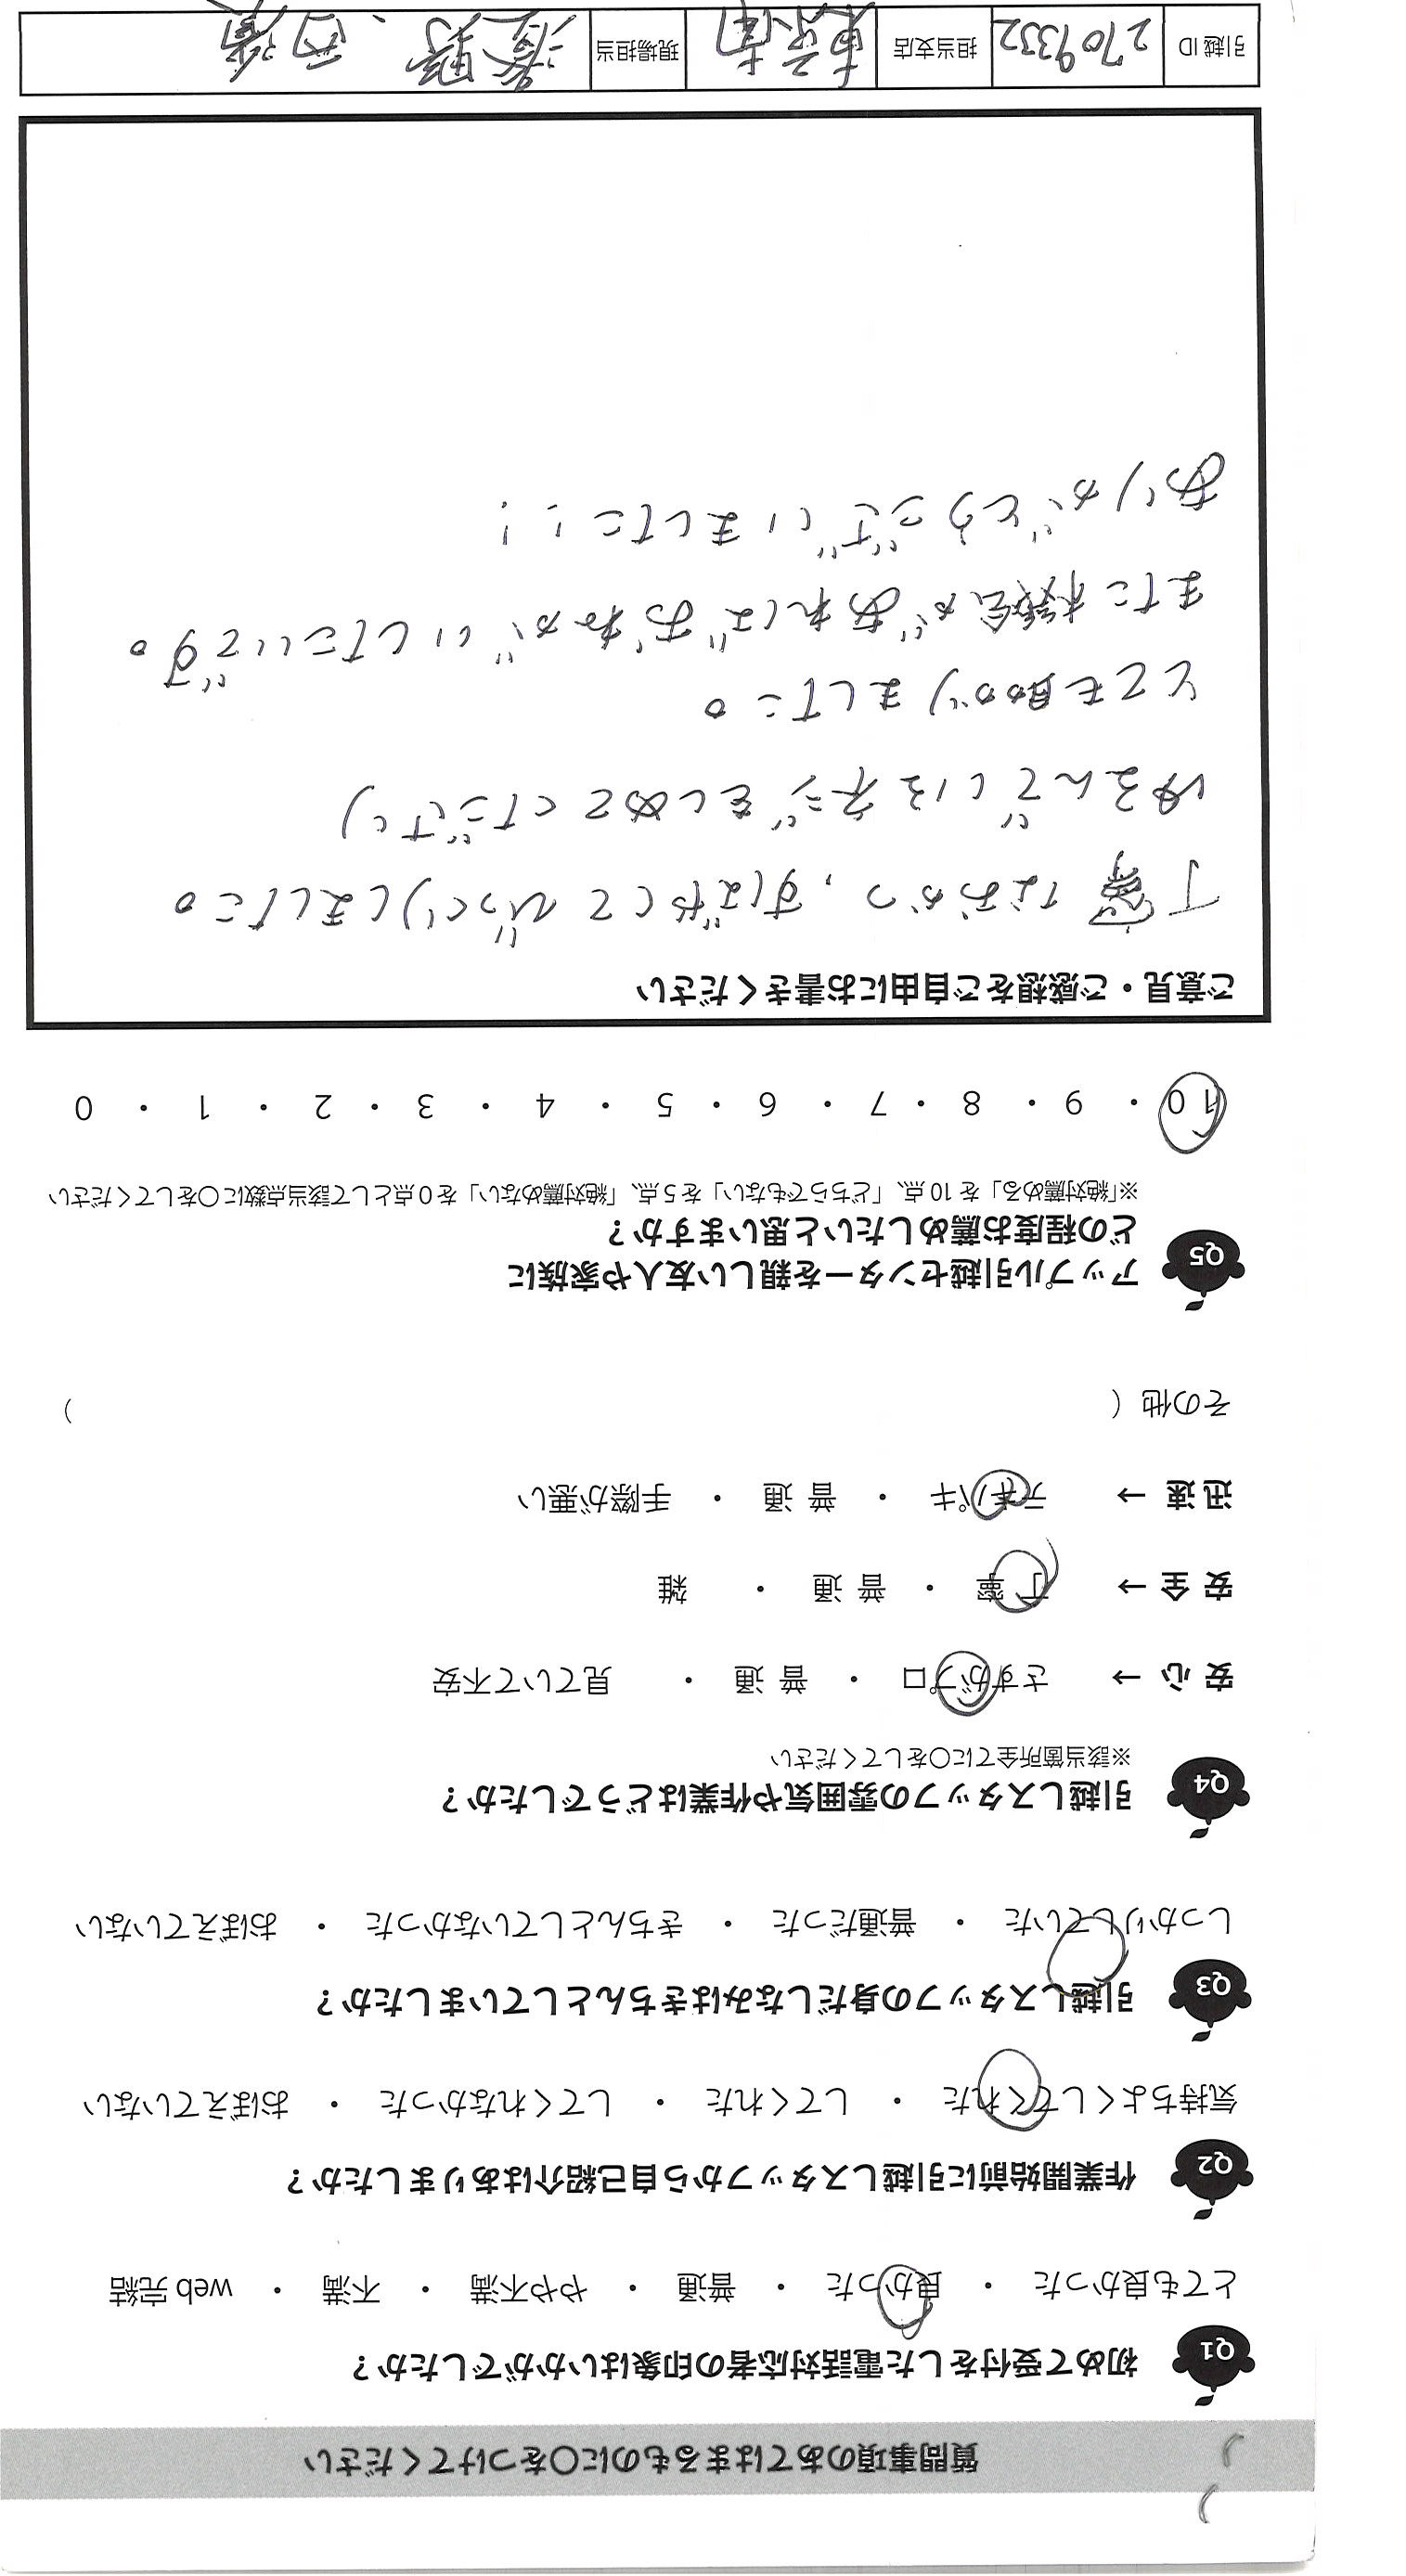 質問事項のあてはまるものに○をつけてください
Q1 初めて受付をした電話対応者の印象はいかがでしたか？
とても良かった ・ 良かった ・ 普通 ・ やや不満 ・ 不満 ・ web 完結
Q2 作業開始前に引越しスタッフから自己紹介はありましたか？
気持ちよくしてくれた ・ してくれた ・ してくれなかった ・ おぼえていない
Q3 引越しスタッフの身だしなみはきちんとしていましたか？
しっかりしていた ・ 普通だった ・ きちんとしていなかった ・ おぼえていない
Q4 引越しスタッフの雰囲気や作業はどうでしたか？
※該当箇所全てに○をしてください
安心 → さすがプロ ・ 普通 ・ 見ていて不安
安全 → 丁寧 ・ 普通 ・ 雑
迅速 → テキパキ ・ 普通 ・ 手際が悪い
その他（ ）
Q5 アップル引越センターを親しい友人や家族に
どの程度お薦めしたいと思いますか？
※「絶対薦める」を 10 点、「どちらでもない」を 5 点、「絶対薦めない」を 0 点として該当点数に○をしてください
10 ・ 9 ・ 8 ・ 7 ・ 6 ・ 5 ・ 4 ・ 3 ・ 2 ・ 1 ・ 0
ご意見・ご感想をご自由にお書きください
丁寧なおかつ、すばやくてびっくりしました。
ゆるんでいるネジをしめてくださり
とても助かりました。
また機会があればおねがいしたいです。
ありがとうございました！！
引越 ID 2709332 担当支店 東京南 現場担当